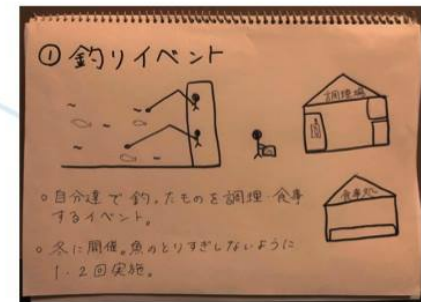 ① 釣りイベント
調理場
食事処
○ 自分達で釣ったものを調理・食事
するイベント。
○ 冬に開催。魚のとりすぎしないように
1・2回実施。